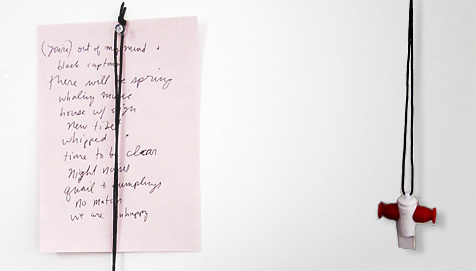 (you're) out of my mind
black captain
there will be spring
whaling music
house w/ sign
new tides
whipped
time to be clear
night noises
quail + dumplings
no match
we are unhappy